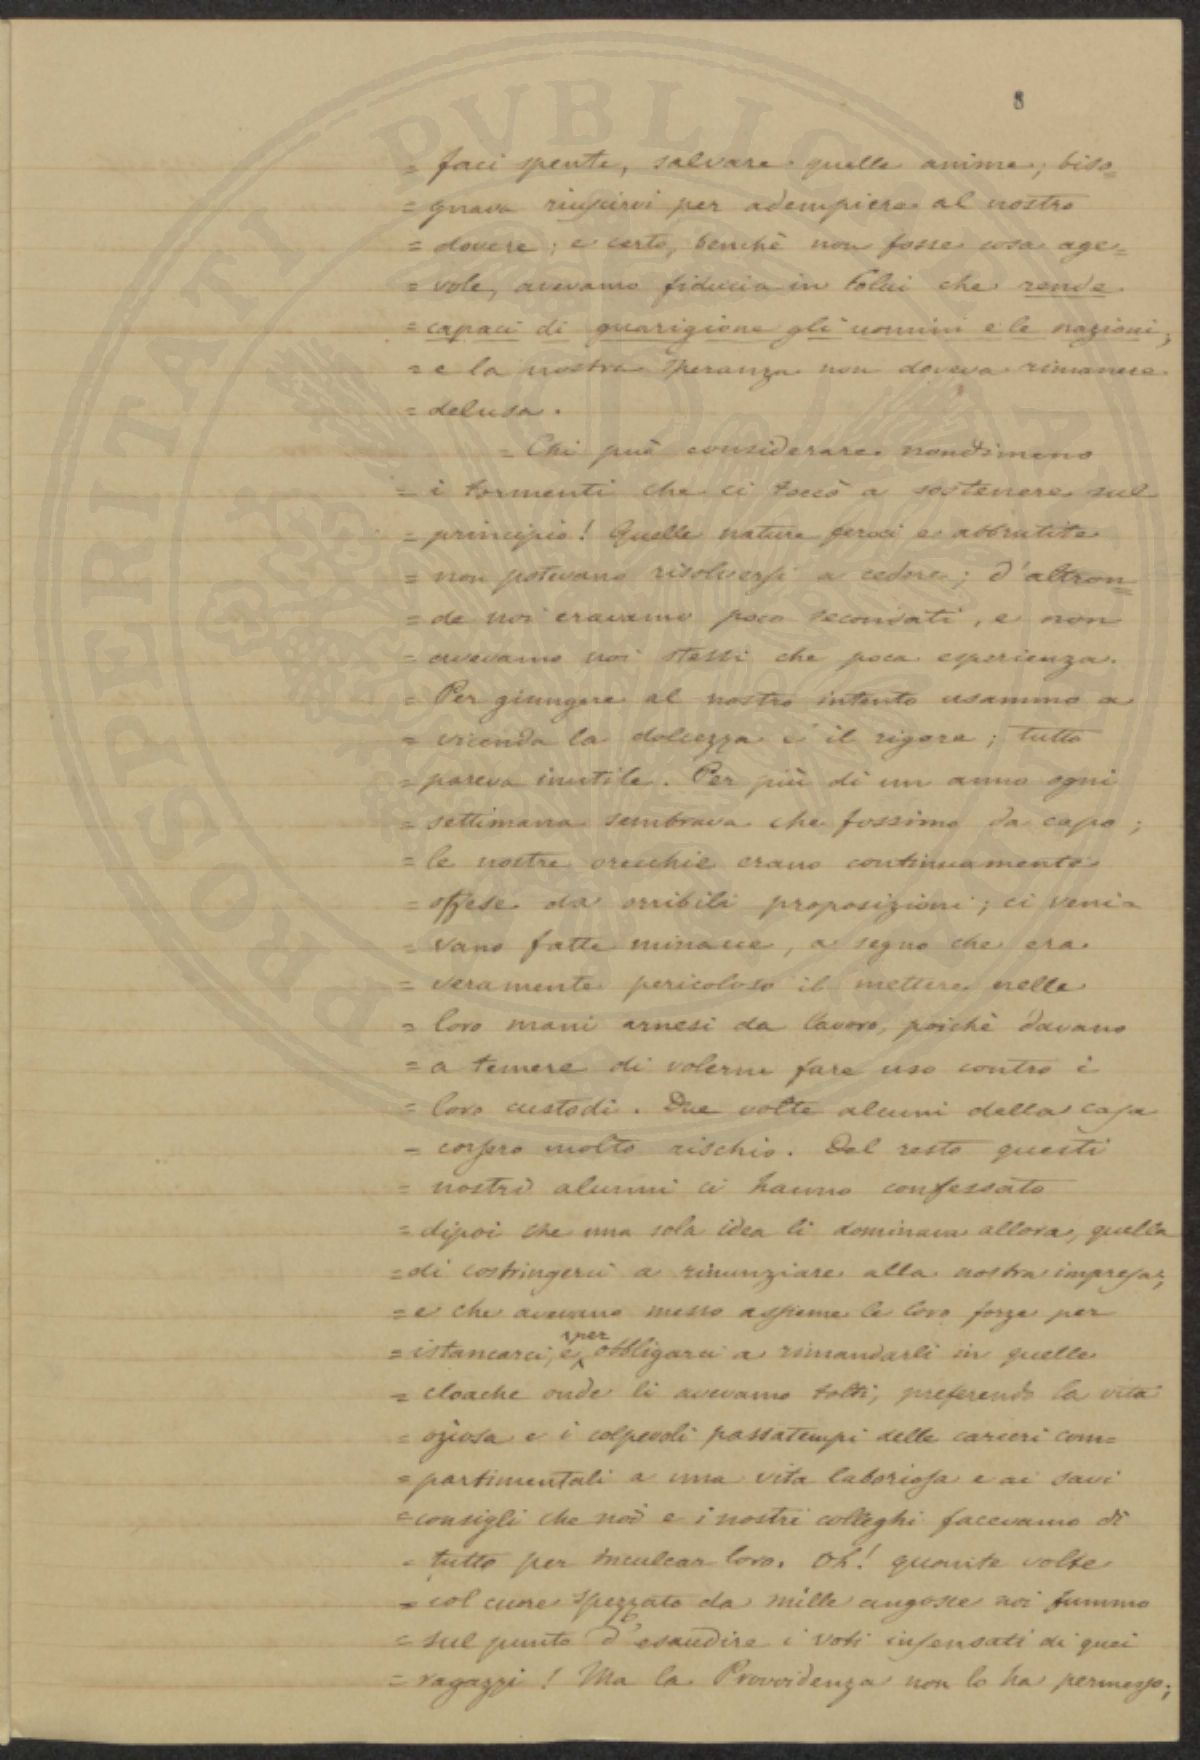 8
= faci spente, salvare quelle anime; biso=
= gnava riuscirvi per adempiere al nostro
= dovere; e certo, benchè non fosse cosa age=
= vole, avevamo fiducia in Colui che rende
= capaci di guarigione gli uomini e le nazioni;
= e la nostra speranza non doveva rimanere
= delusa.
= Chi può considerare nondimeno
= i tormenti che ci toccò a sostenere sul
= principio! Quelle nature feroci e abbrutite
= non potevano risolversi a cedere; d'altron=
= de noi eravamo poco secondati, e non
= avevamo noi stessi che poca esperienza.
= Per giungere al nostro intento usammo a
= vicenda la dolcezza e il rigore; tutto
= pareva inutile. Per più di un anno ogni
= settimana sembrava che fossimo da capo;
= le nostre orecchie erano continuamente
= offese da orribili proposizioni; ci veni=
= vano fatte minacce, a segno che era
= veramente pericoloso il mettere nelle
= loro mani arnesi da lavoro, poichè davano
= a temere di volerne fare uso contro i
= loro custodi. Due volte alcuni della casa
= corsero molto rischio. Del resto questi
= nostri alunni ci hanno confessato
= dipoi che una sola idea li dominava allora, quella
= di costringerci a rinunziare alla nostra impresa;
= e che avevano messo assieme le loro forze per
= istancarci, e per obbligarci a rimandarli in quelle
= cloache onde li avevamo tolti, preferendo la vita
= oziosa e i colpevoli passatempi delle carceri com=
= partimentali a una vita laboriosa e ai savi
= consigli che noi e i nostri colleghi facevamo di
= tutto per inculcar loro. Oh! quante volte
= col cuore spezzato da mille angosce noi fummo
= sul punto d'esaudire i voti insensati di quei
= ragazzi! Ma la Provvidenza non lo ha permesso;
PROSPERITATI PVBLICAE